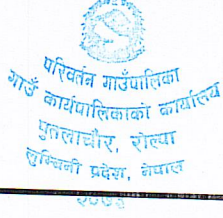 परिवर्तन गाउँपालिका
गाउँ कार्यपालिकाको कार्यालय
पुतलाचौर, रोल्पा
लुम्बिनी प्रदेश, नेपाल
२०७३